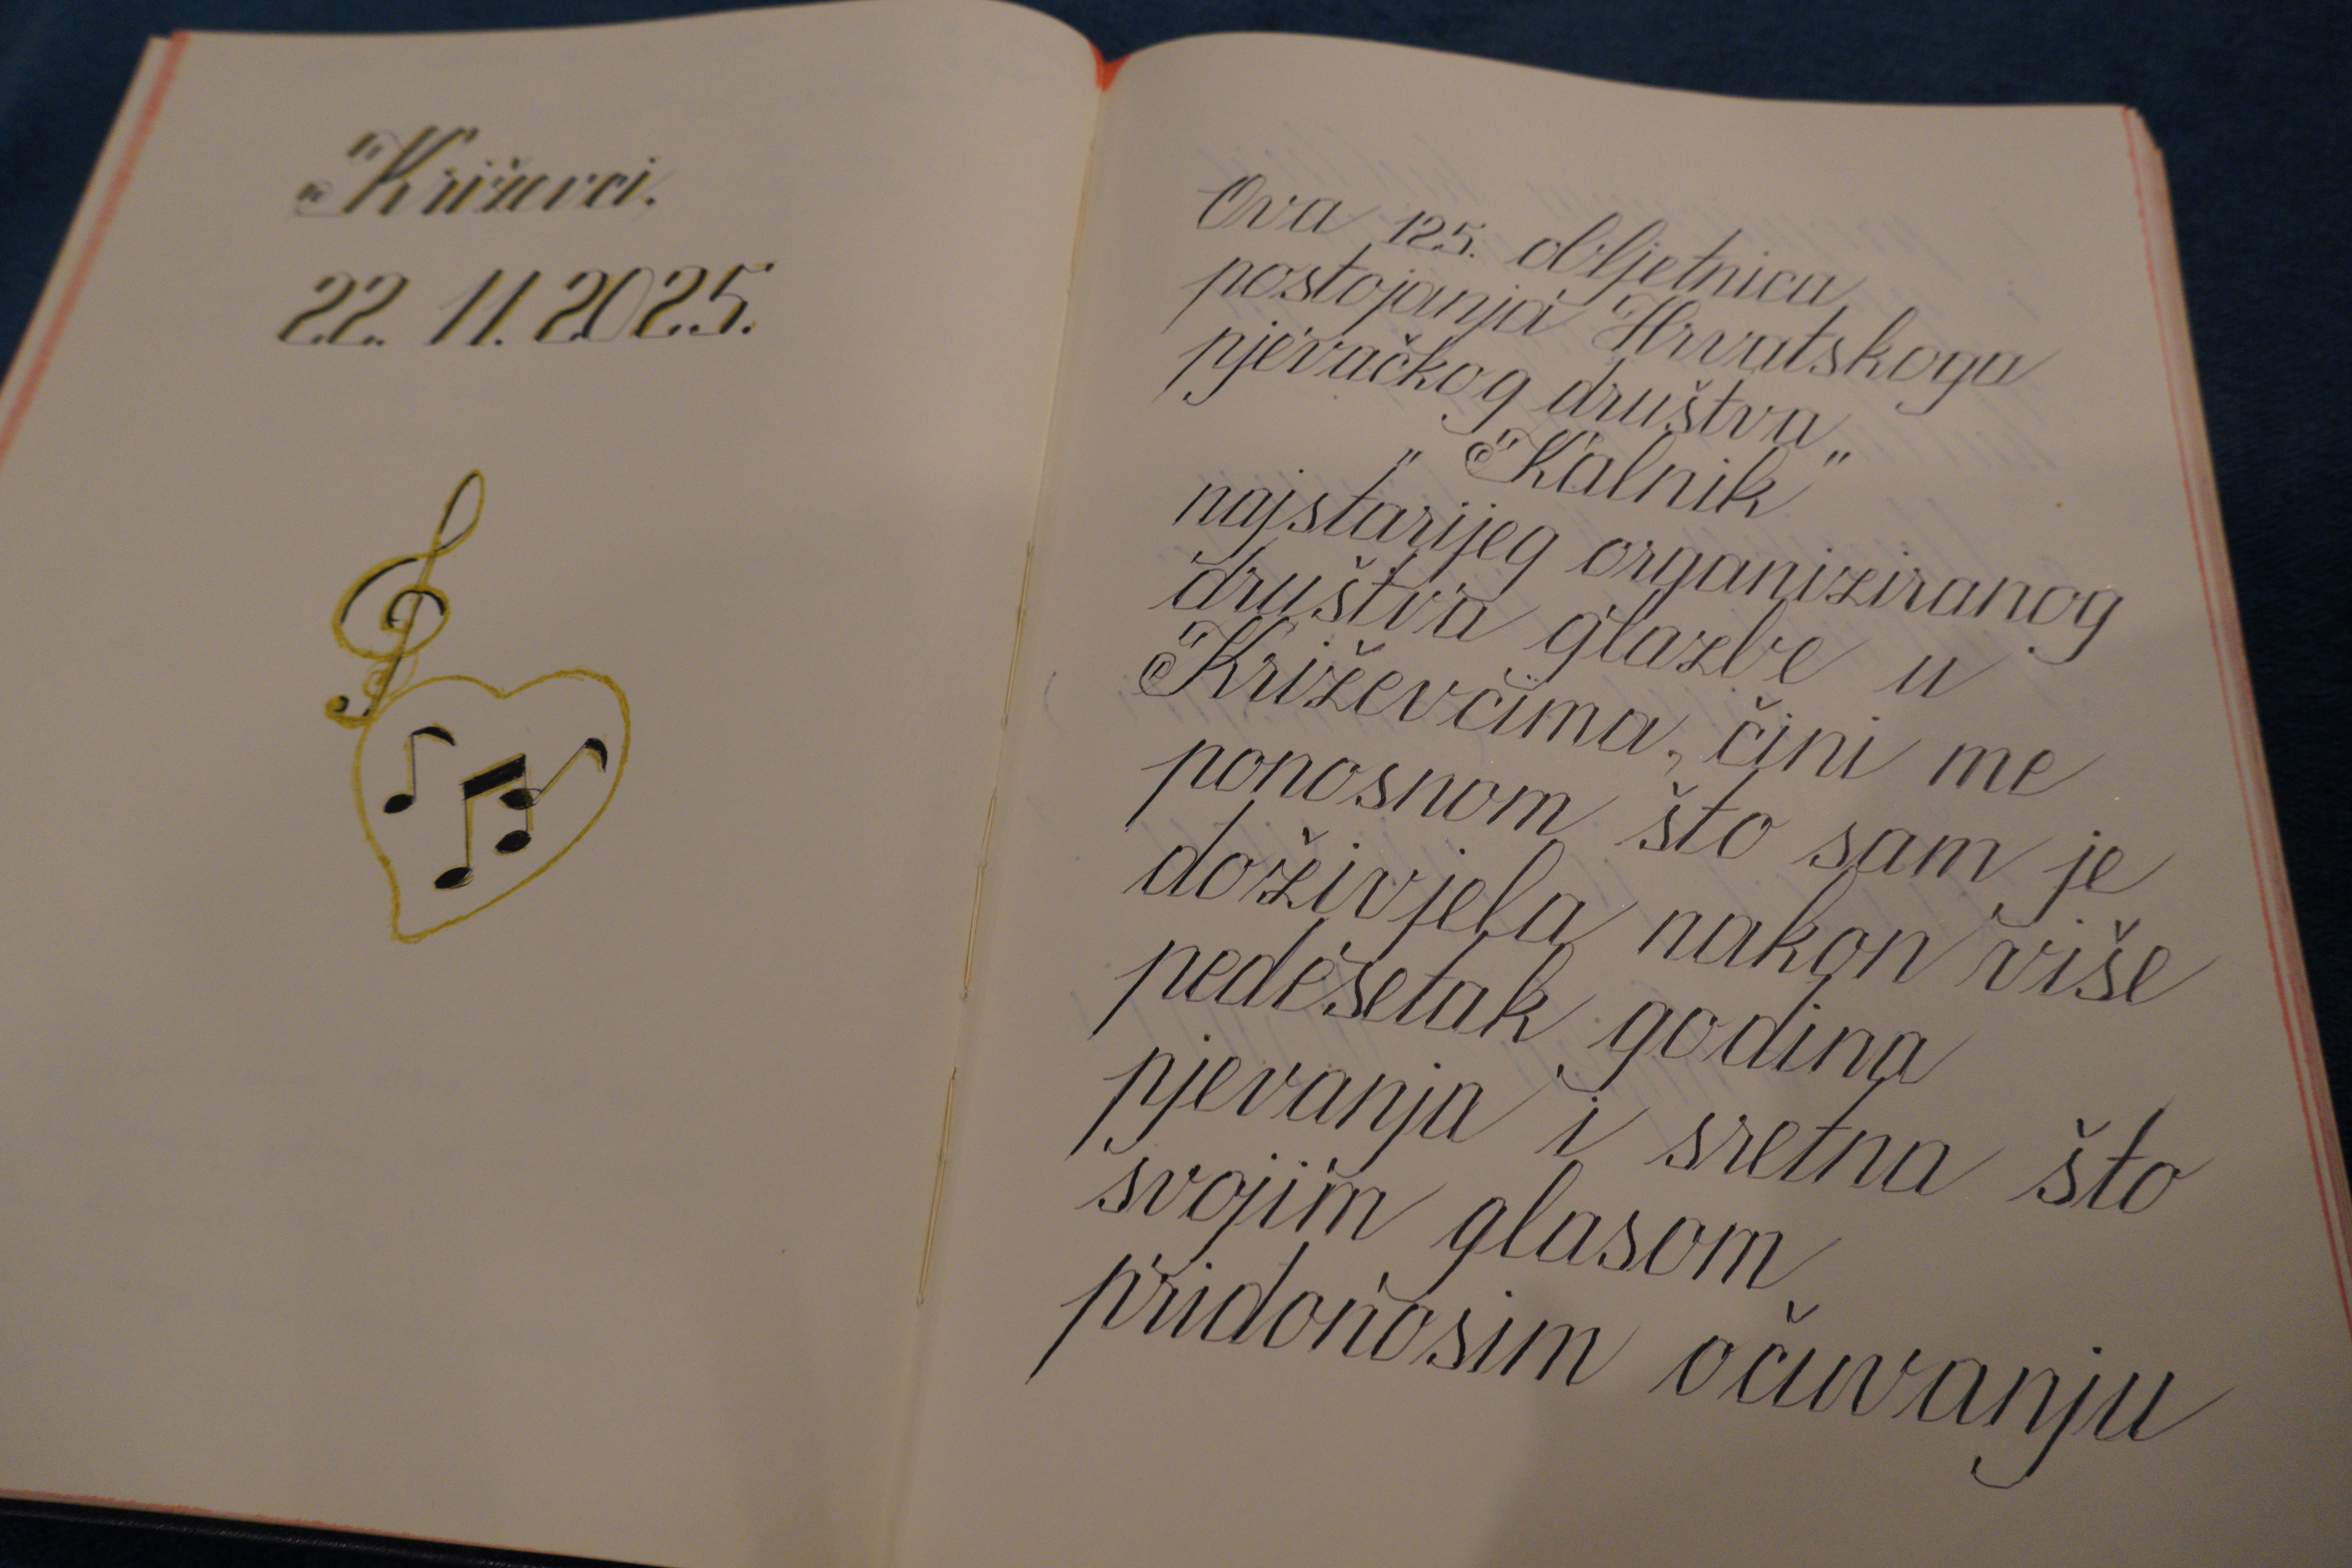 Križevci.
22. 11. 2025.
Ova 125. obljetnica
postojanja Hrvatskoga
pjevačkog društva
"Kalnik"
najstarijeg organiziranog
društva glazbe u
Križevcima, čini me
ponosnom što sam je
doživjela nakon više
pedesetak godina
pjevanja i sretna što
svojim glasom
pridonosim očuvanju